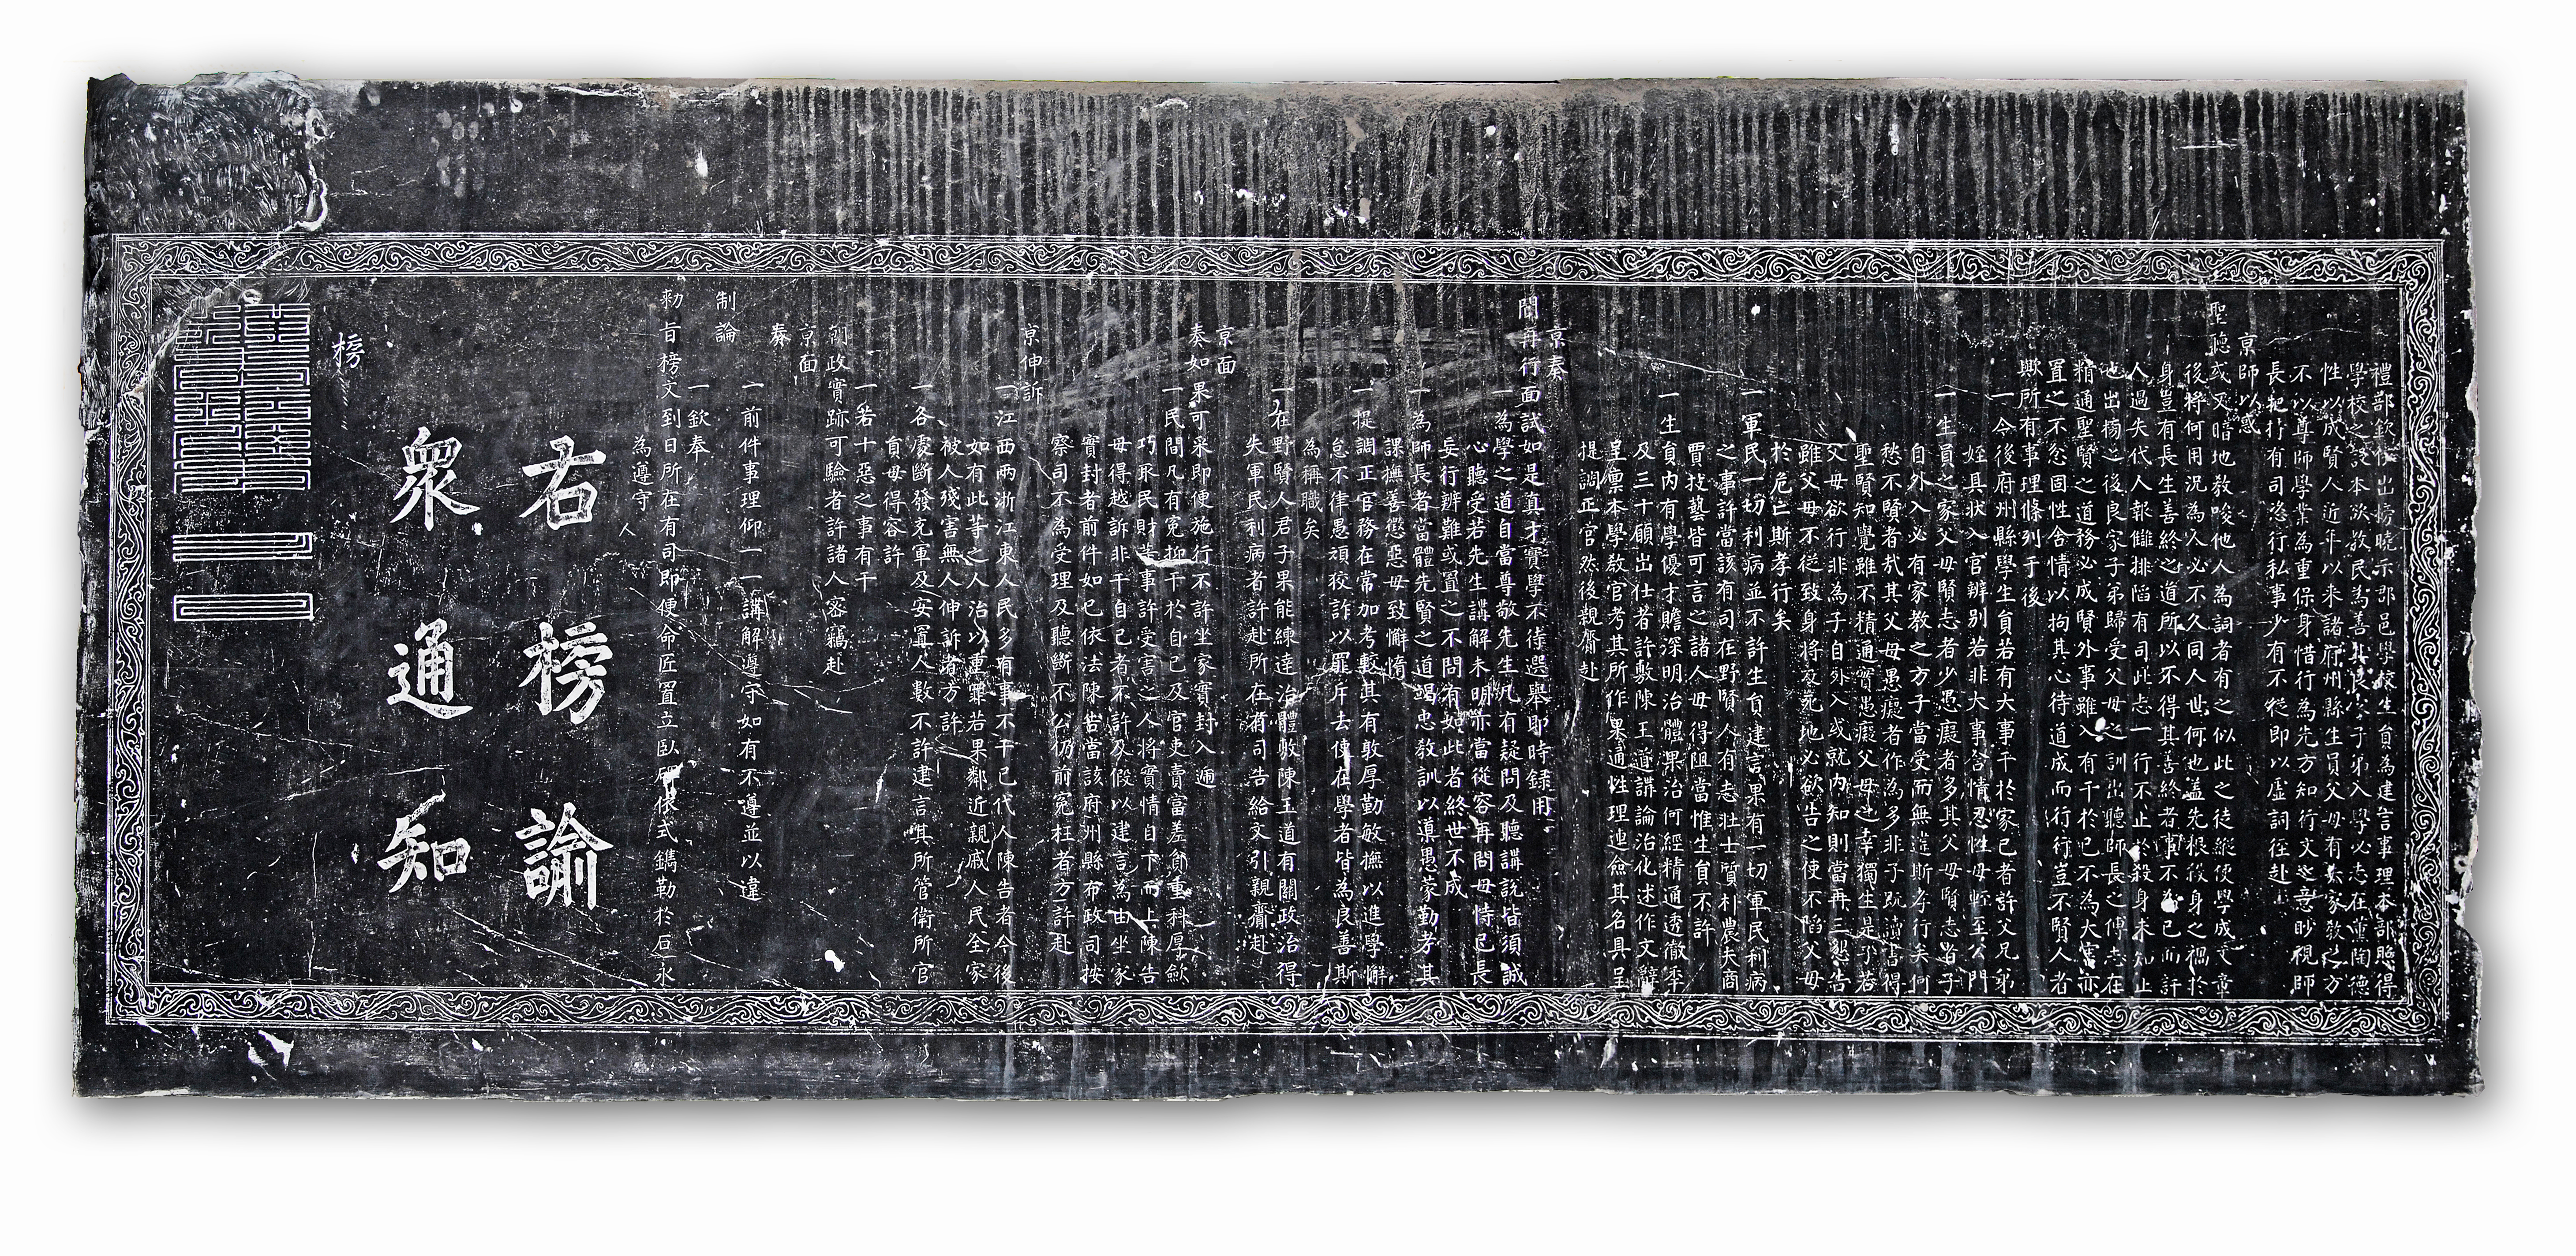 禮部欽依出榜曉示郡邑學校生員為建言事理本部照得
學校之設本欲教民為善其良家子弟入學必志在薰陶德
性以成賢人近年以來諸府州縣生員父母有失家教之方
不以尊師學業為重保身惜行為先方知行文之意眇視師
長把持有司恣行私事少有不從即以虛詞徑赴
京師以惑
聖聽或又暗地教唆他人為詞者有之似此之徒縱使學成文章
後將何用況為人必不久同人世何也蓋先根殺身之禍於
身豈有長生善終之道所以不得其善終者事不為己而訐
人過失代人報讎排陷有司此志一行不止於殺身未知止
也出榜之後良家子弟歸受父母之訓出聽師長之傅志在
精通聖賢之道務必成賢外事雖入有干於己不為大害亦
置之不忿固性含情以拘其心待道成而行行豈不賢人者
歟所有事理條列于後
一今後府州縣學生員若有大事干於家己者許父兄弟
姪具狀入官辨別若非大事含情忍性毋輕至公門
一生員之家父母賢志者少愚癡者多其父母賢志者子
自外入必有家教之方子當受而無違斯孝行矣何
愁不賢者哉其父母愚癡者作為多非子既讀書得
聖賢知覺雖不精通實愚癡父母之幸獨生是子若
父母欲行非為子自外入或就內知則當再三懇告
雖父母不從致身將及死地必欲告之使不陷父母
於危亡斯孝行矣
一軍民一切利病並不許生員建言果有一切軍民利病
之事許當該有司在野賢人有志壯士質朴農夫商
賈技藝皆可言之諸人毋得阻當惟生員不許
一生員內有學優才贍深明治體果治何經精通透徹年
及三十願出仕者許敷陳王道講論治化述作文辭
呈稟本學教官考其所作果通性理連僉其名具呈
提調正官然後親齎赴
京奏
聞再行面試如是真才實學不待選舉即時錄用
一為學之道自當尊敬先生凡有疑問及聽講說皆須誠
心聽受若先生講解未明亦當從容再問毋恃己長
妄行辨難或置之不問有如此者終世不成
一為師長者當體先賢之道竭忠教訓以導愚蒙勤考其
課撫善懲惡毋致懈惰
一提調正官務在常加考較其有敦厚勤敏撫以進學懈
怠不律愚頑狡詐以罪斥去使在學者皆為良善斯
為稱職矣
一在野賢人君子果能練達治體敷陳王道有關政治得
失軍民利病者許赴所在有司告給文引親齎赴
京面
奏如果可采即便施行不許坐家實封入遞
一民間凡有冤抑干於自己及官吏賣富差貧重科厚歛
巧取民財等事許受害之人將實情自下而上陳告
毋得越訴非干自己者不許及假以建言為由坐家
實封者前件如已依法陳告當該府州縣布政司按
察司不為受理及聽斷不公仍前冤枉者方許赴
京伸訴
一江西兩浙江東人民多有事不干己代人陳告者今後
如有此等之人治以重罪若果鄰近親戚人民全家
被人殘害無人伸訴者方許
一各處斷發充軍及安置人數不許建言其所管衛所官
員毋得容許
一若十惡之事有干
朝政實跡可驗者許諸人密竊赴
京面
奏
一前件事理仰一一講解遵守如有不遵並以違
制論
一欽奉
勅旨榜文到日所在有司即便命匠置立臥碑依式鐫勒於石永
為遵守
右榜諭
眾通知
榜